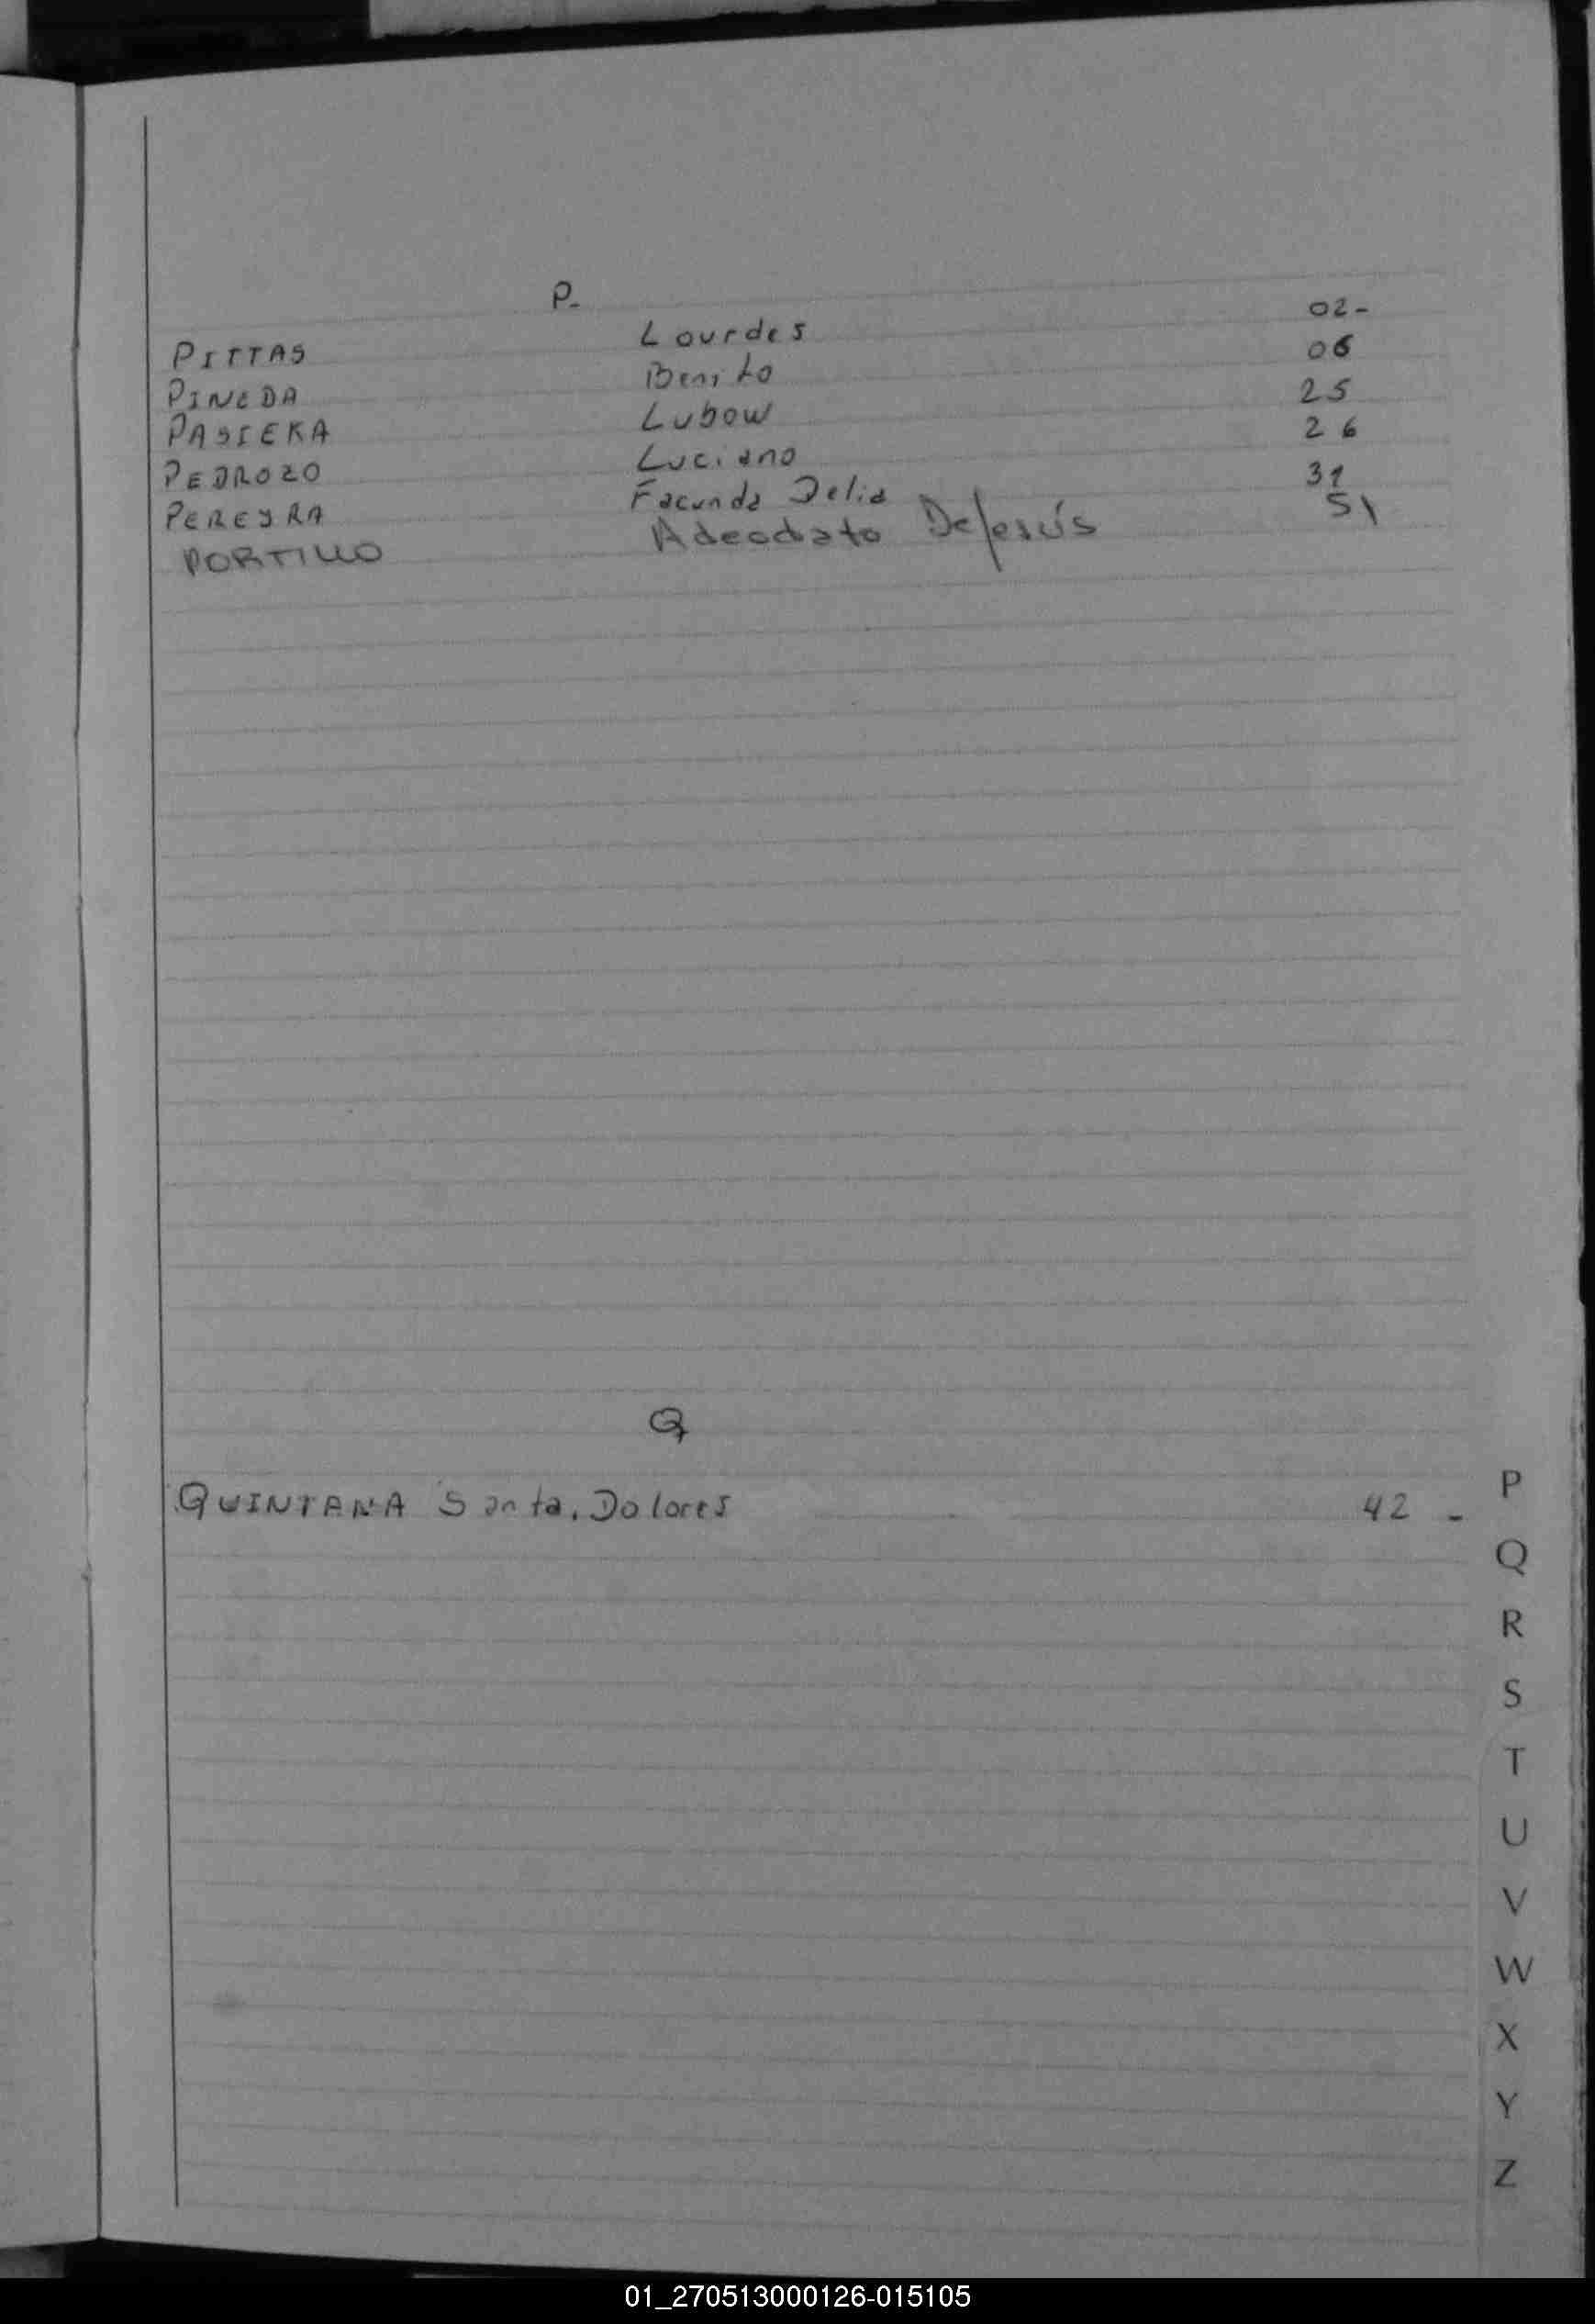 P.
PITTAS Lourdes 02-
PINEDA Benito 06
PASIEKA Lubow 25
PEDROZO Luciano 26
PEREYRA Facunda Delia 31
PORTILLO Adeodato DeJesús 51
Q
QUINTANA Santa, Dolores 42 -
P
Q
R
S
T
U
V
W
X
Y
Z
01_270513000126-015105